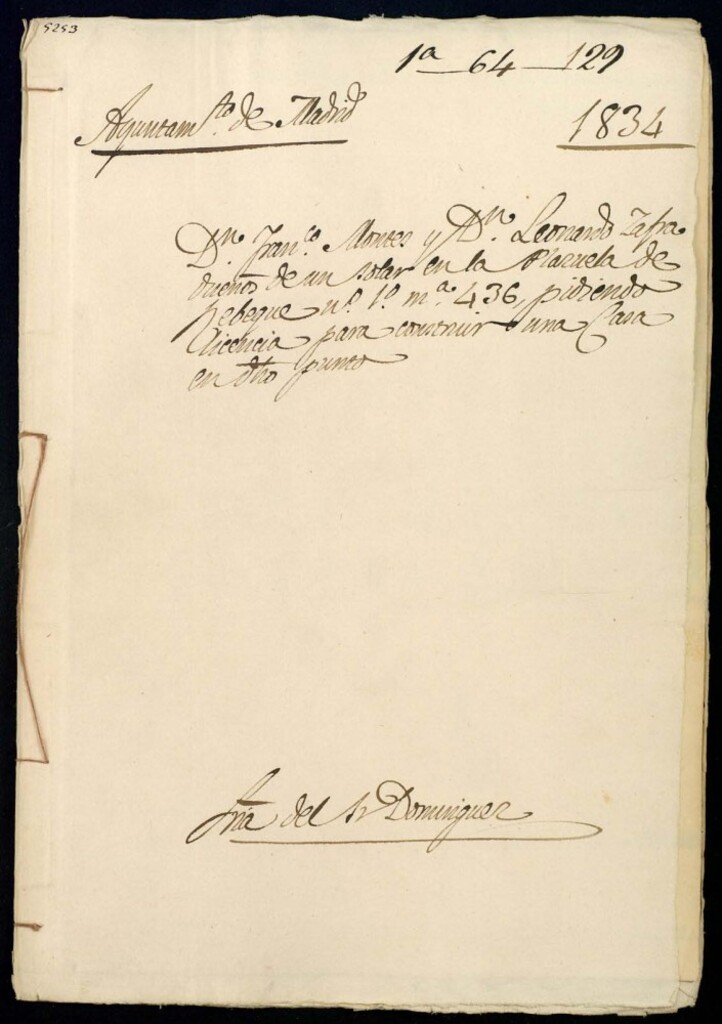 5253
1ª 64 129
Ayuntamto. de Madrid
1834
Dn. Franco. Montes y Dn. Leonardo Zafra
dueños de un solar en la Plazuela de
Rebeque nº. 1º. mª. 436, pidiendo
licencia para construir una Casa
en dho punto
Sria del Sr Dominguez